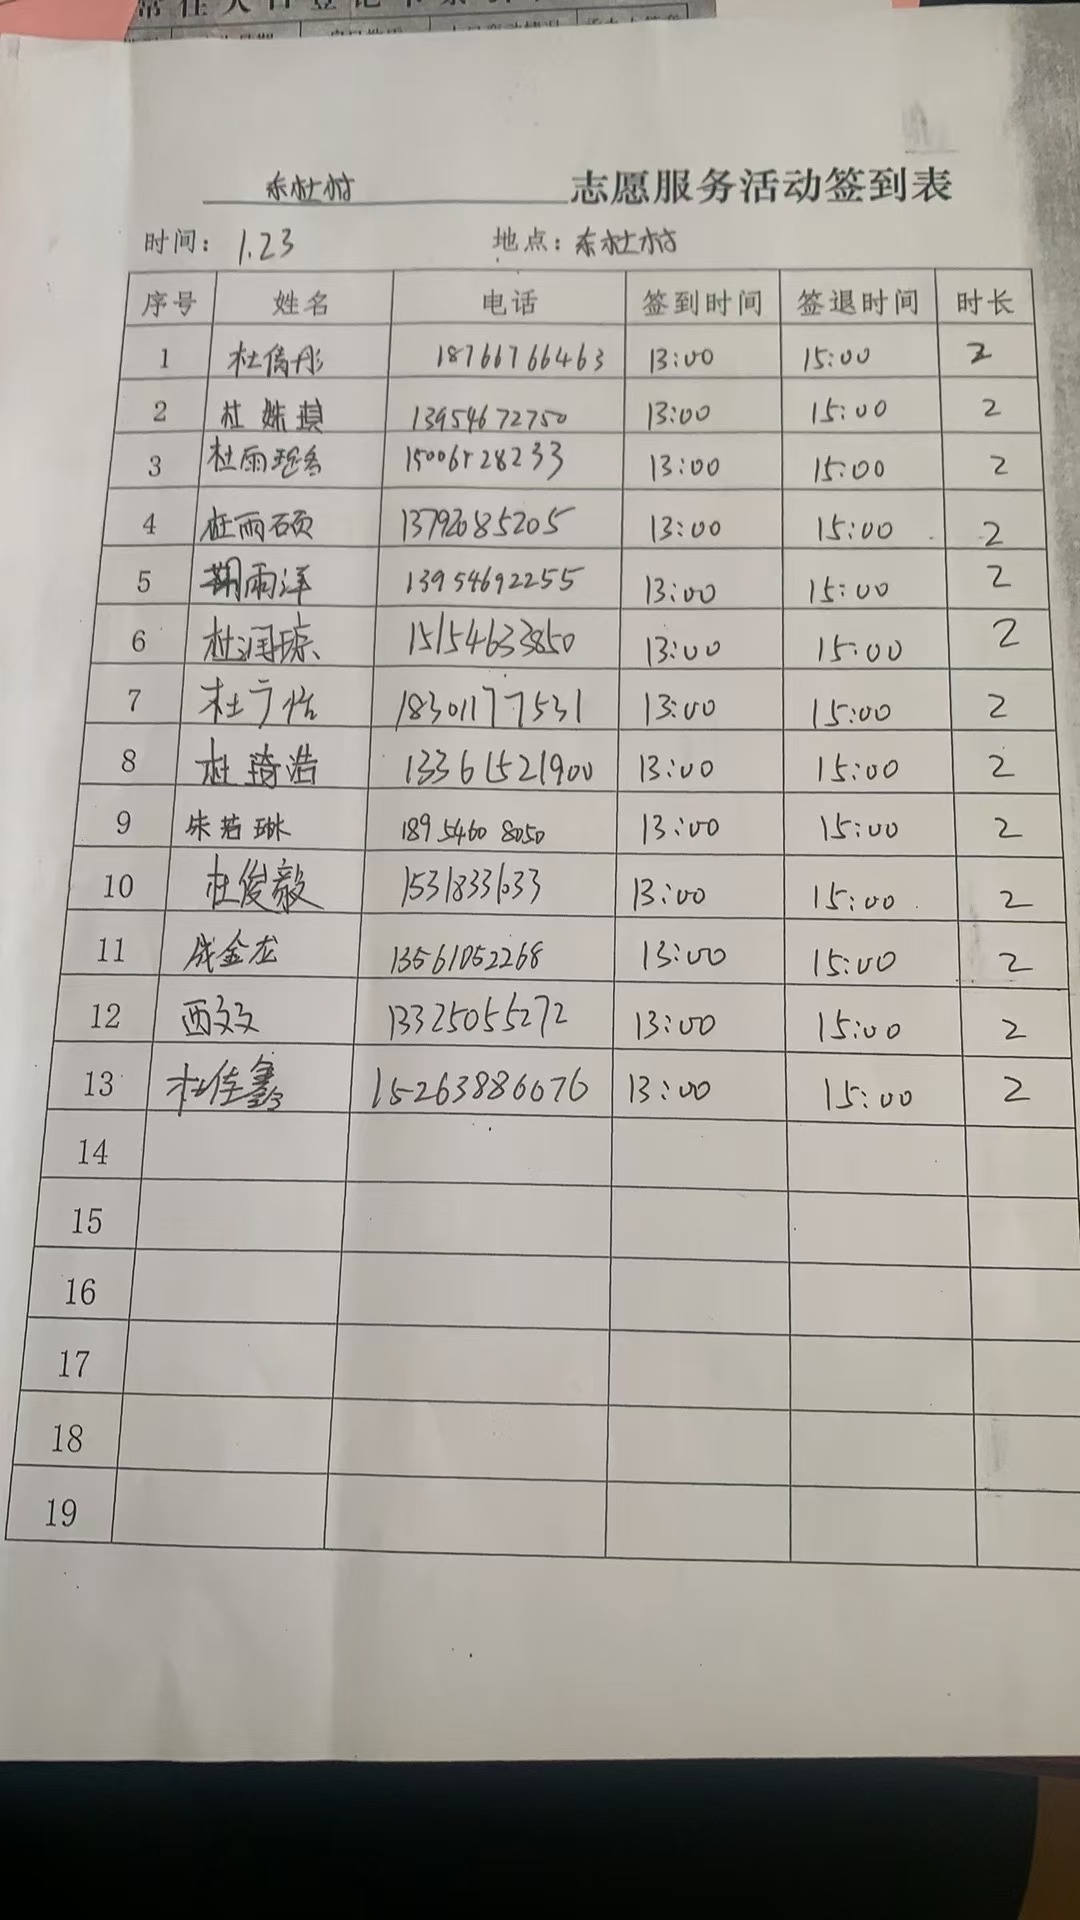 常住人口登记
东杜村 志愿服务活动签到表
时间：1.23 地点：东杜村
序号 姓名 电话 签到时间 签退时间 时长
1 杜倩彤 18766766463 13:00 15:00 2
2 杜姝琪 13954672750 13:00 15:00 2
3 杜雨 13:00 15:00 2
4 杜雨硕 13792085205 13:00 15:00 2
5 雨洋 13954692255 13:00 15:00 2
6 杜润琼 15154633850 13:00 15:00 2
7 杜广怡 18301177531 13:00 15:00 2
8 杜琦浩 13361521900 13:00 15:00 2
9 朱若琳 18954608050 13:00 15:00 2
10 杜俊毅 15318331633 13:00 15:00 2
11 成金龙 13561052268 13:00 15:00 2
12 西文文 13325055272 13:00 15:00 2
13 杜佳鑫 15263886076 13:00 15:00 2
14
15
16
17
18
19